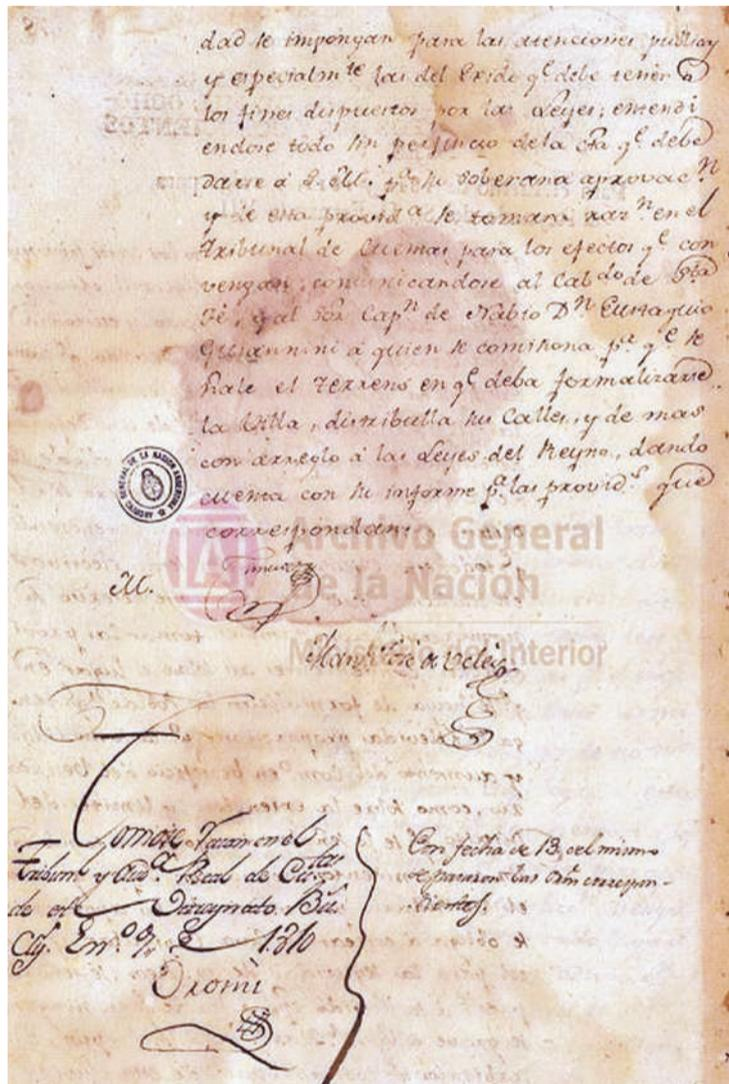 dad se impongan para las atenciones publicas
y especialm.te las del Exido q.e debe tener a
los fines dispuestos por las Leyes; entendi
endose todo sin perjuicio de la cta q.e debe
darse á S.M. p.a su soberana aprovac.n
y de esta provid.a se tomara raz.n en el
Tribunal de Cuentas para los efectos q.e con
vengan, comunicandose al Cab.do de Sta
Fé, y al Sor Cap.n de Nabio D.n Eustaquio
Giannini á quien se comisiona p.a q.e se
ñale el Terreno en q.e deba formalizarse
la Villa, distribulla sus Calles, y de mas
con arreglo á las Leyes del Reyno, dando
cuenta con su informe p.a las provid.s que
correspondan
ARCHIVO GENERAL DE LA NACION ARGENTINA
Archivo General
de la Nación
Ministerio del Interior
M.
Man.l José de Velez
Tomose razon en el
Tribunal y Aud.a Real de Cu.tas
de este Virreynato. Bu.s
Ay.s En.o 9 de 1810
Oromí
Con fecha de 13 del mismo
se pasaron las orn correspon-
dientes.